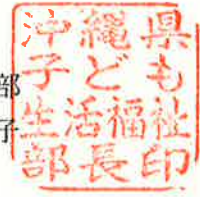 沖縄県
子ども
生活福祉
部長印
部
子